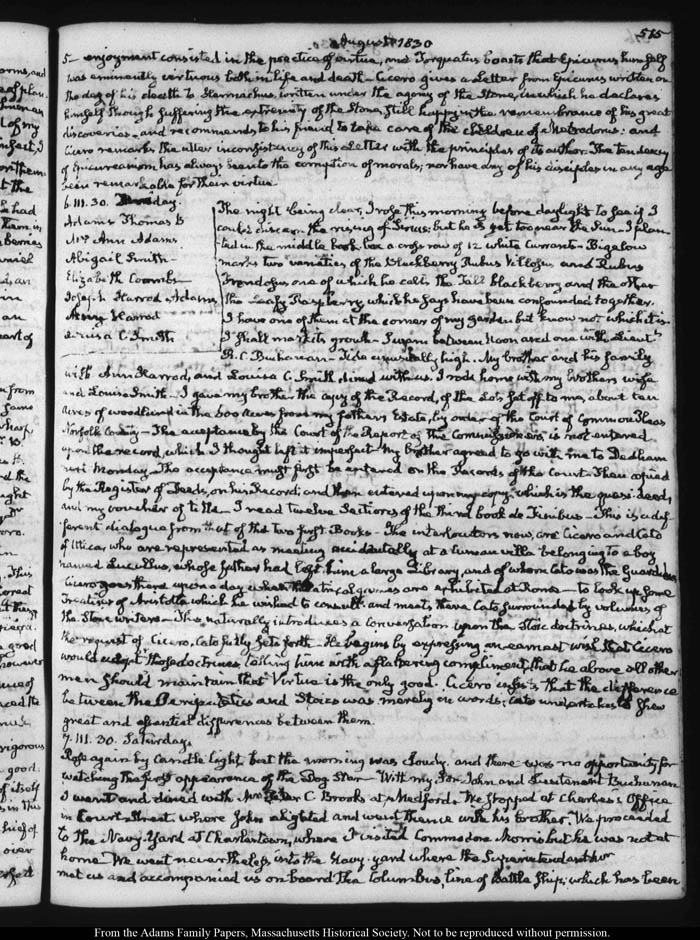 August 1830
515
5— enjoyment consisted in the practice of virtue, and Torquatus boasts that Epicurus himself
was eminently virtuous both in life and death— Cicero gives a Letter from Epicurus written on
the day of his death to Hermachus, written under the agony of the Stone, in which he declares
himself though suffering the extremity of the Stone, still happy in the remembrance of his great
discoveries— and recommends to his friend to take care of the children of Metrodorus: and
Cicero remarks the utter inconsistency of this Letter with the principles of its author. The tendency
of Epicureanism has always been to the corruption of morals; nor have any of his disciples in any age
been remarkable for their virtue.
6. III. 30. day.
Adams Thomas B
Mrs Ann Adams
Abigail Smith—
Elizabeth Coombs—
Joseph Harrod Adams
Harrod
Louisa C. Smith
The night being clear, I rose this morning before daylight to see if I
could discern the rising of Sirius; but he is yet too near the Sun— I plan-
ted in the middle box a cross row of 12 white Currants— Bigelow
marks two varieties of the Blackberry Rubus Villosus, and Rubus
Frondosus one of which he calls the Tall blackberry and the other
the Leafy Raspberry which he says have been confounded together.
I have one of them at the corner of my garden but know not which it is.
I shall mark its growth— Swam between Noon and one with Lieut't
R. C. Buchanan— Tide unusually high. My brother and his family
with Ann Harrod, and Louisa C. Smith, dined with us. I rode home with my brothers wife
and Louisa Smith— I gave my brother the copy of the Record, of the Lots set off to me, about ten
Acres of woodland in the 200 Acres from my fathers Estate, by order of the Court of Common Pleas
Norfolk County— The acceptance by the Court of the Report of the Commissioners, is not entered
upon the record, which I thought left it imperfect— My brother agreed to go with me to Dedham
next Monday— The acceptance must first be entered on the Records of the Court— Then copied
by the Register of Deeds, on his Record; and then entered upon my copy, which is the quasi deed,
and my voucher of title— I read twelve Sections of the third book de Finibus— This is a dif-
ferent dialogue from that of the two first Books— The interlocutors now, are Cicero and Cato
of Utica, who are represented as meeting accidentally at a Tusculan villa belonging to a boy
named Lucullus, whose father had left him a large Library, and of whom Cato was the Guardian
Cicero goes there upon a day when theatrical games are exhibited at Rome— to look up some
Treatises of Aristotle which he wished to consult and meets there Cato surrounded by volumes of
the Stoic writers— This naturally introduces a conversation upon the Stoic doctrines, which at
the request of Cicero, Cato fully sets forth— He begins by expressing an earnest wish that Cicero
would adopt those doctrines, telling him with a flattering compliment, that he above all other
men should maintain that Virtue is the only good. Cicero insists that the difference
between the Peripatetics and Stoics was merely in words; Cato undertakes to shew
great and essential differences between them.
7. III. 30. Saturday.
Rose again by Candle light, but the morning was cloudy, and there was no opportunity for
watching the first appearance of the Dog Star— With my Son John and Lieutenant Buchanan
I went and dined with Mr Peter C. Brooks at Medford. We stopped at Charles's Office
in Court Street where John alighted and went thence with his brother. We proceeded
to the Navy Yard at Charlestown, where I visited Commodore Morris but he was not at
home. We went nevertheless into the Navy yard where the Superintendant
met us and accompanied us on board the Columbus, line of Battle Ship, which has been
From the Adams Family Papers, Massachusetts Historical Society. Not to be reproduced without permission.